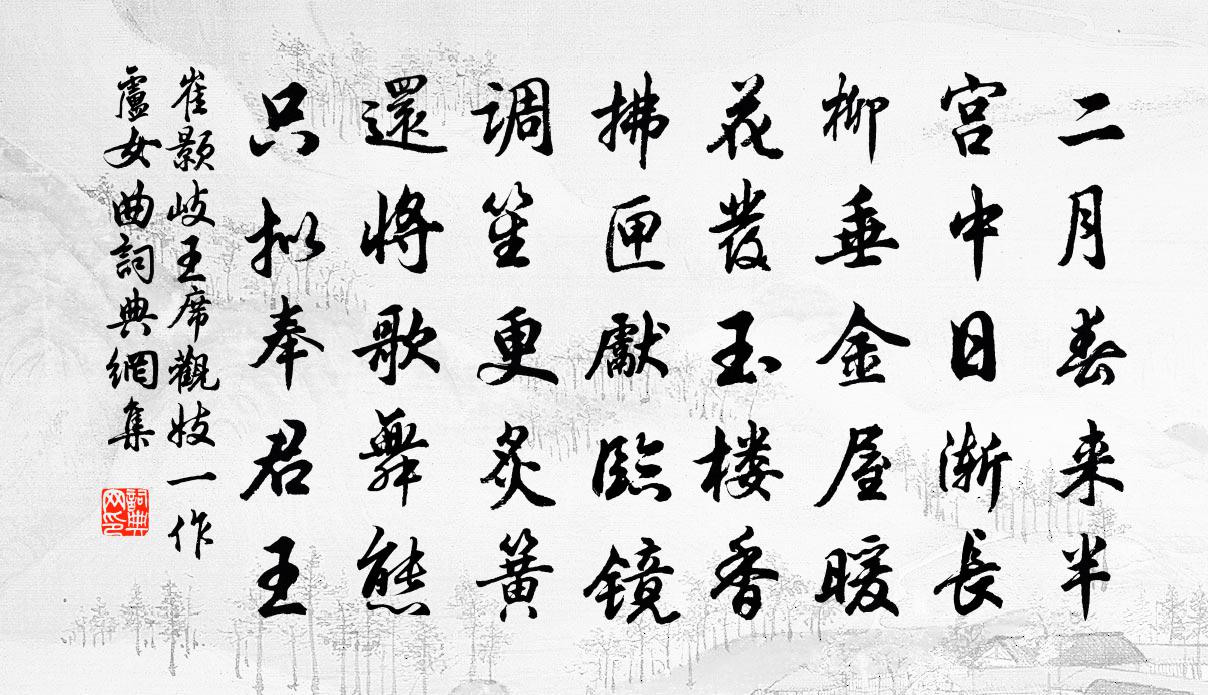 二月春来半
宫中日渐長
柳垂金屋暖
花發玉楼香
拂匣獻臨镜
调笙更炙簧
還將歌舞態
只拟奉君王
崔顥岐王席觀妓一作
盧女曲詞典網集
詞典网印